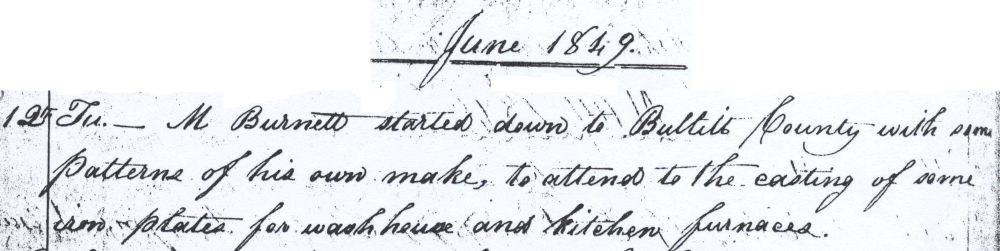 June 1849.
12 Tu. — M Burnett started down to Bullitt County with some
patterns of his own make, to attend to the casting of some
iron plates for wash house and kitchen furnaces.